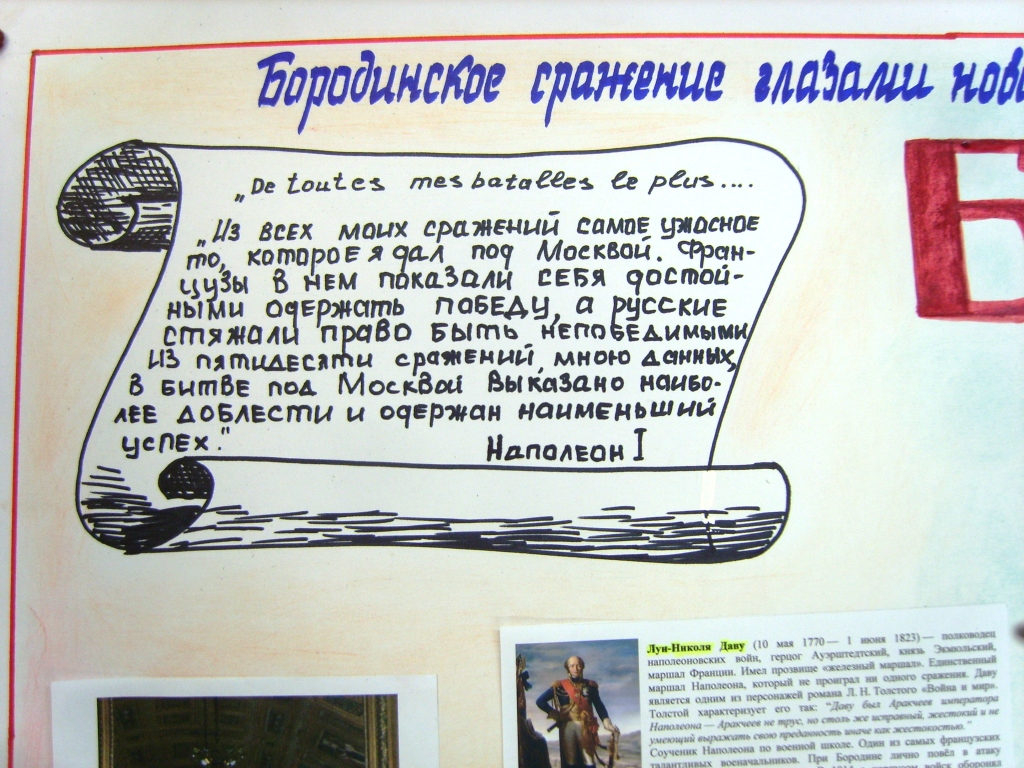 Бородинское сражение глазами
Б
„De toutes mes batalles le plus....
„Из всех моих сражений самое ужасное
то, которое я дал под Москвой. Фран-
цузы в нем показали себя достой-
ными одержать победу, а русские
стяжали право быть непобедимыми
Из пятидесяти сражений, мною данных,
в битве под Москвой выказано наибо-
лее доблести и одержан наименьший
успех."
Наполеон I
Луи-Николя Даву (10 мая 1770 — 1 июня 1823) — полководец
наполеоновских войн, герцог Ауэрштедтский, князь Экмюльский,
маршал Франции. Имел прозвище «железный маршал». Единственный
маршал Наполеона, который не проиграл ни одного сражения. Даву
является одним из персонажей романа Л. Н. Толстого «Война и мир».
Толстой характеризует его так: "Даву был Аракчеев императора
Наполеона — Аракчеев не трус, но столь же исправный, жестокий и не
умеющий выражать свою преданность иначе как жестокостью."
Соученик Наполеона по военной школе. Один из самых французских
талантливых военачальников. При Бородине лично повёл в атаку
войск оборонял